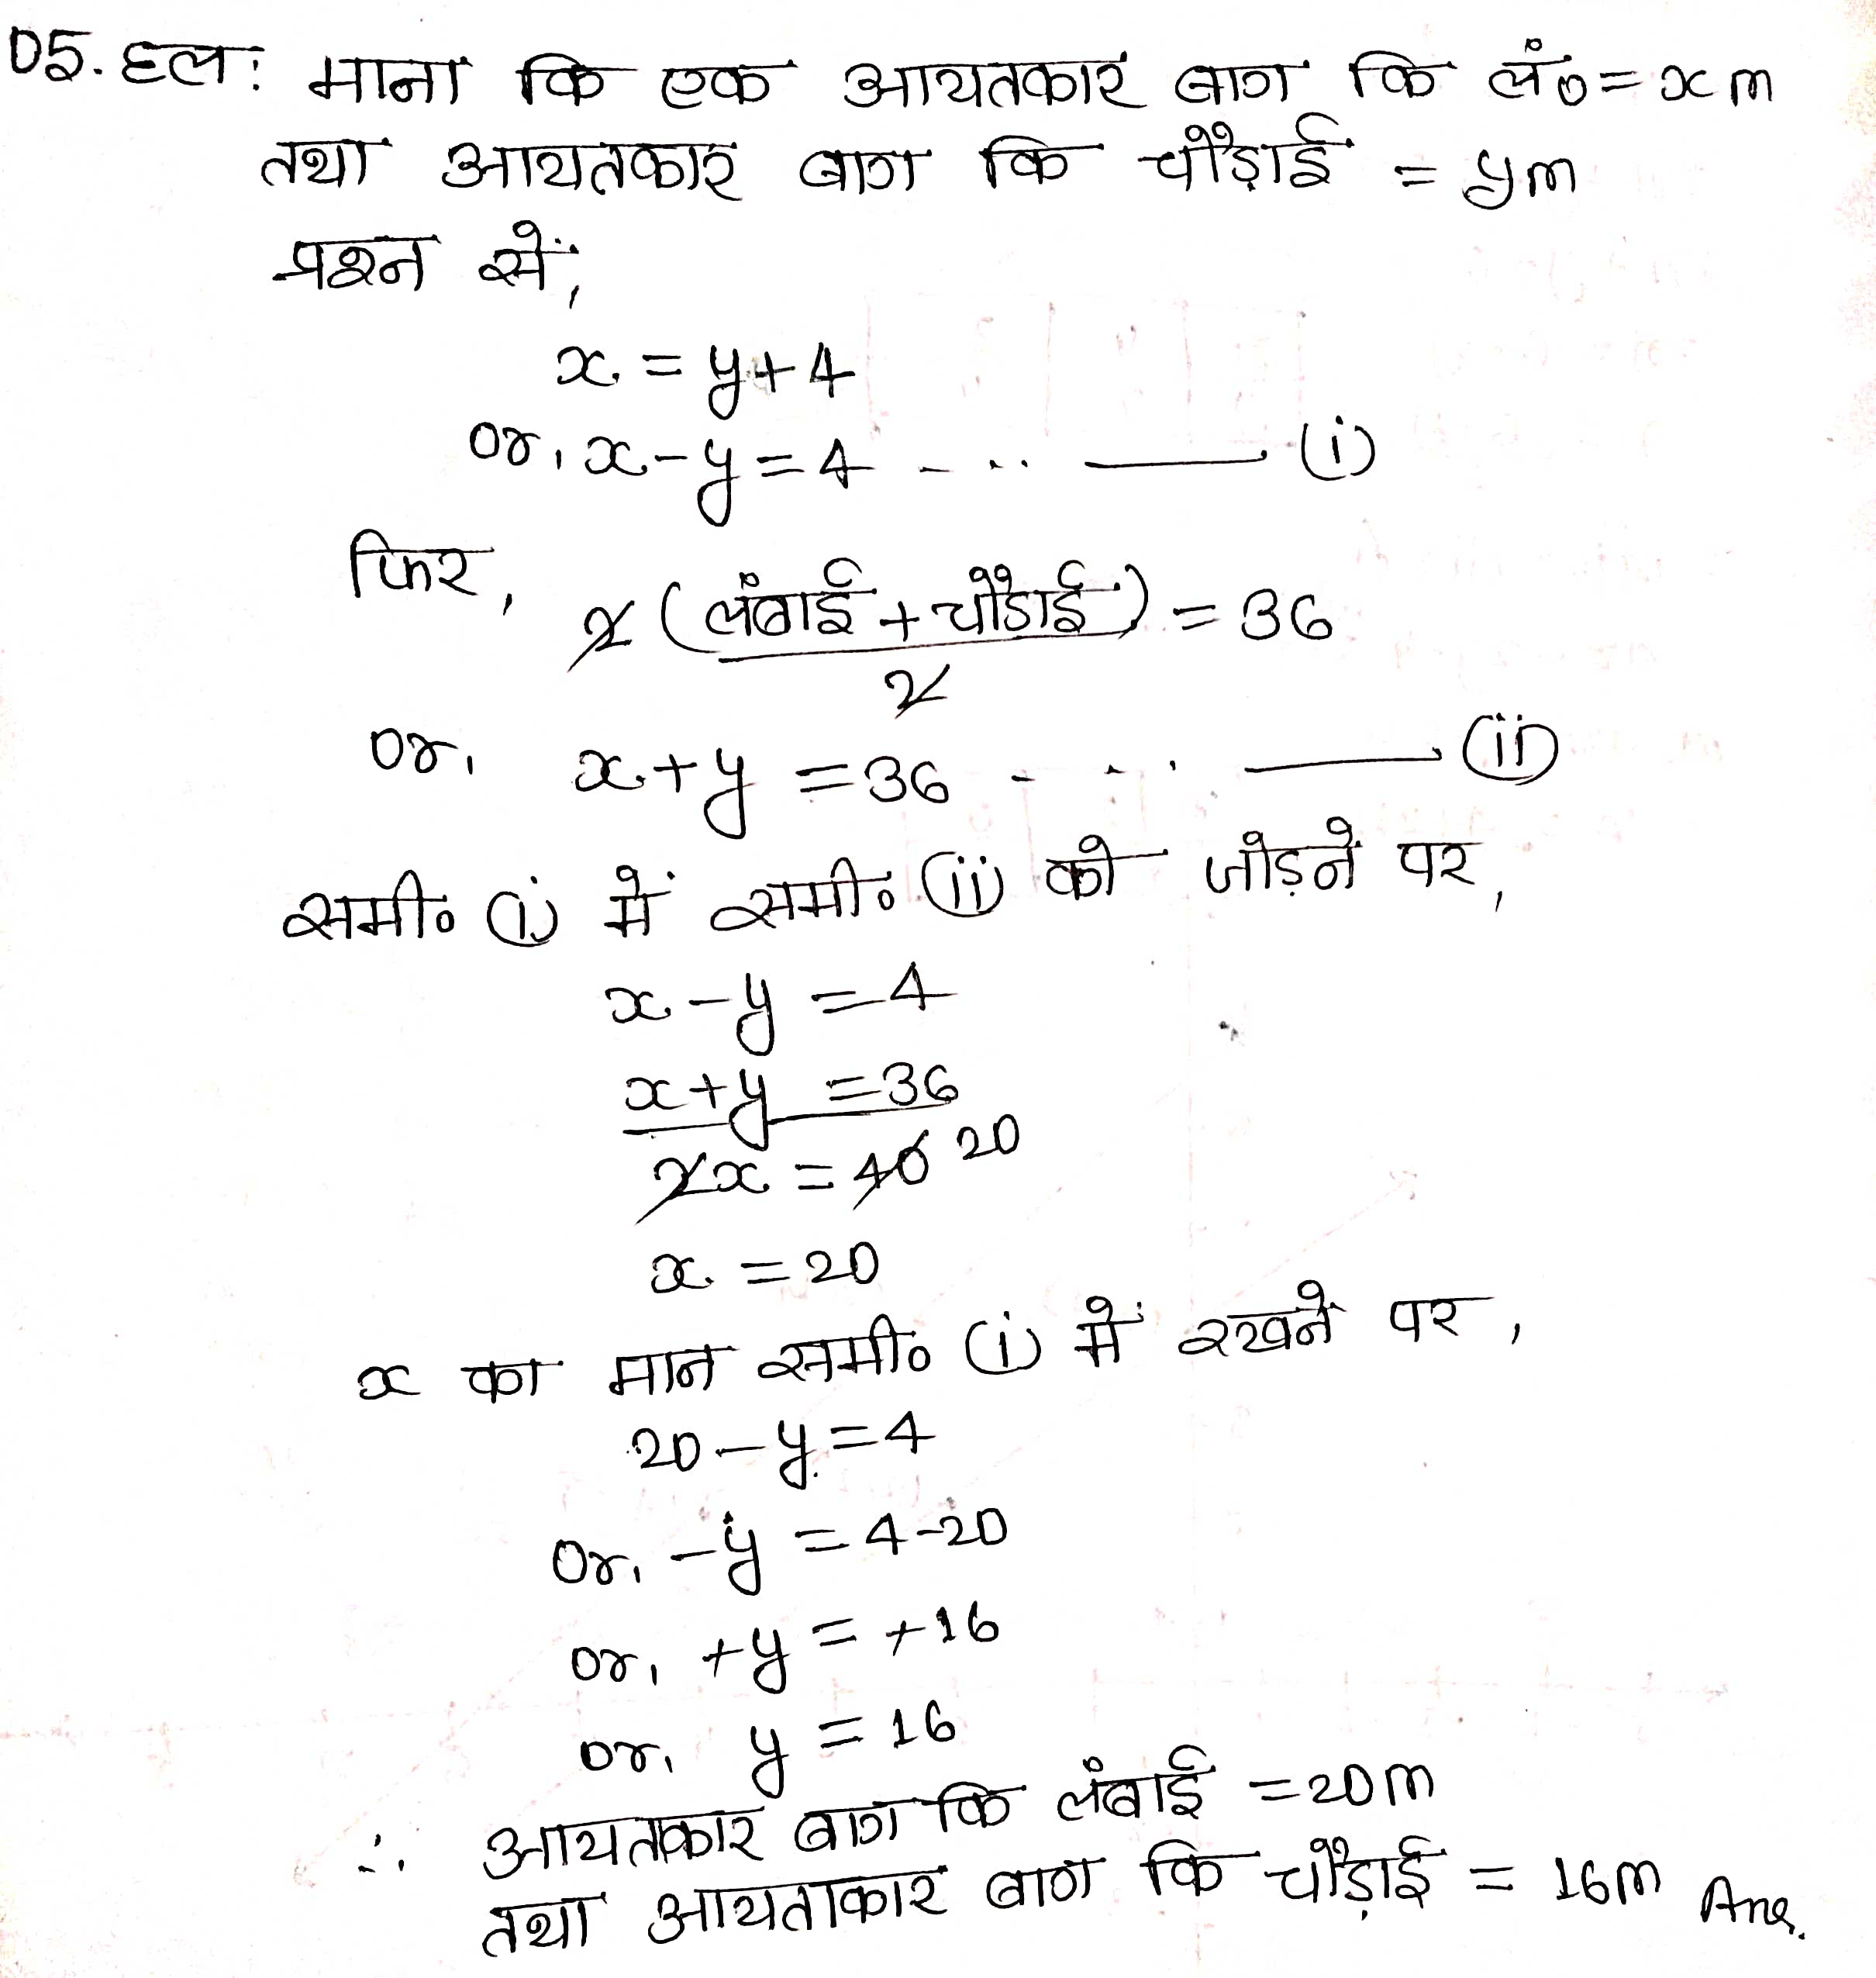 05. हल: माना कि एक आयतकार बाग कि लं० = x m
तथा आयतकार बाग कि चौड़ाई = y m
प्रश्न सें,
x = y + 4
or, x - y = 4 - .. — (i)
फिर,
2 (लंबाई + चौडाई) / 2 = 36
or, x + y = 36 - .. — (ii)
समी० (i) में समी० (ii) को जोड़नें पर,
x - y = 4
x + y = 36
2x = 40 20
x = 20
x का मान समी० (i) में रखनें पर,
20 - y = 4
or, - y = 4 - 20
or, + y = + 16
or, y = 16
∴ आयतकार बाग कि लंबाई = 20 m
तथा आयताकार बाग कि चौड़ाई = 16 m Ans.